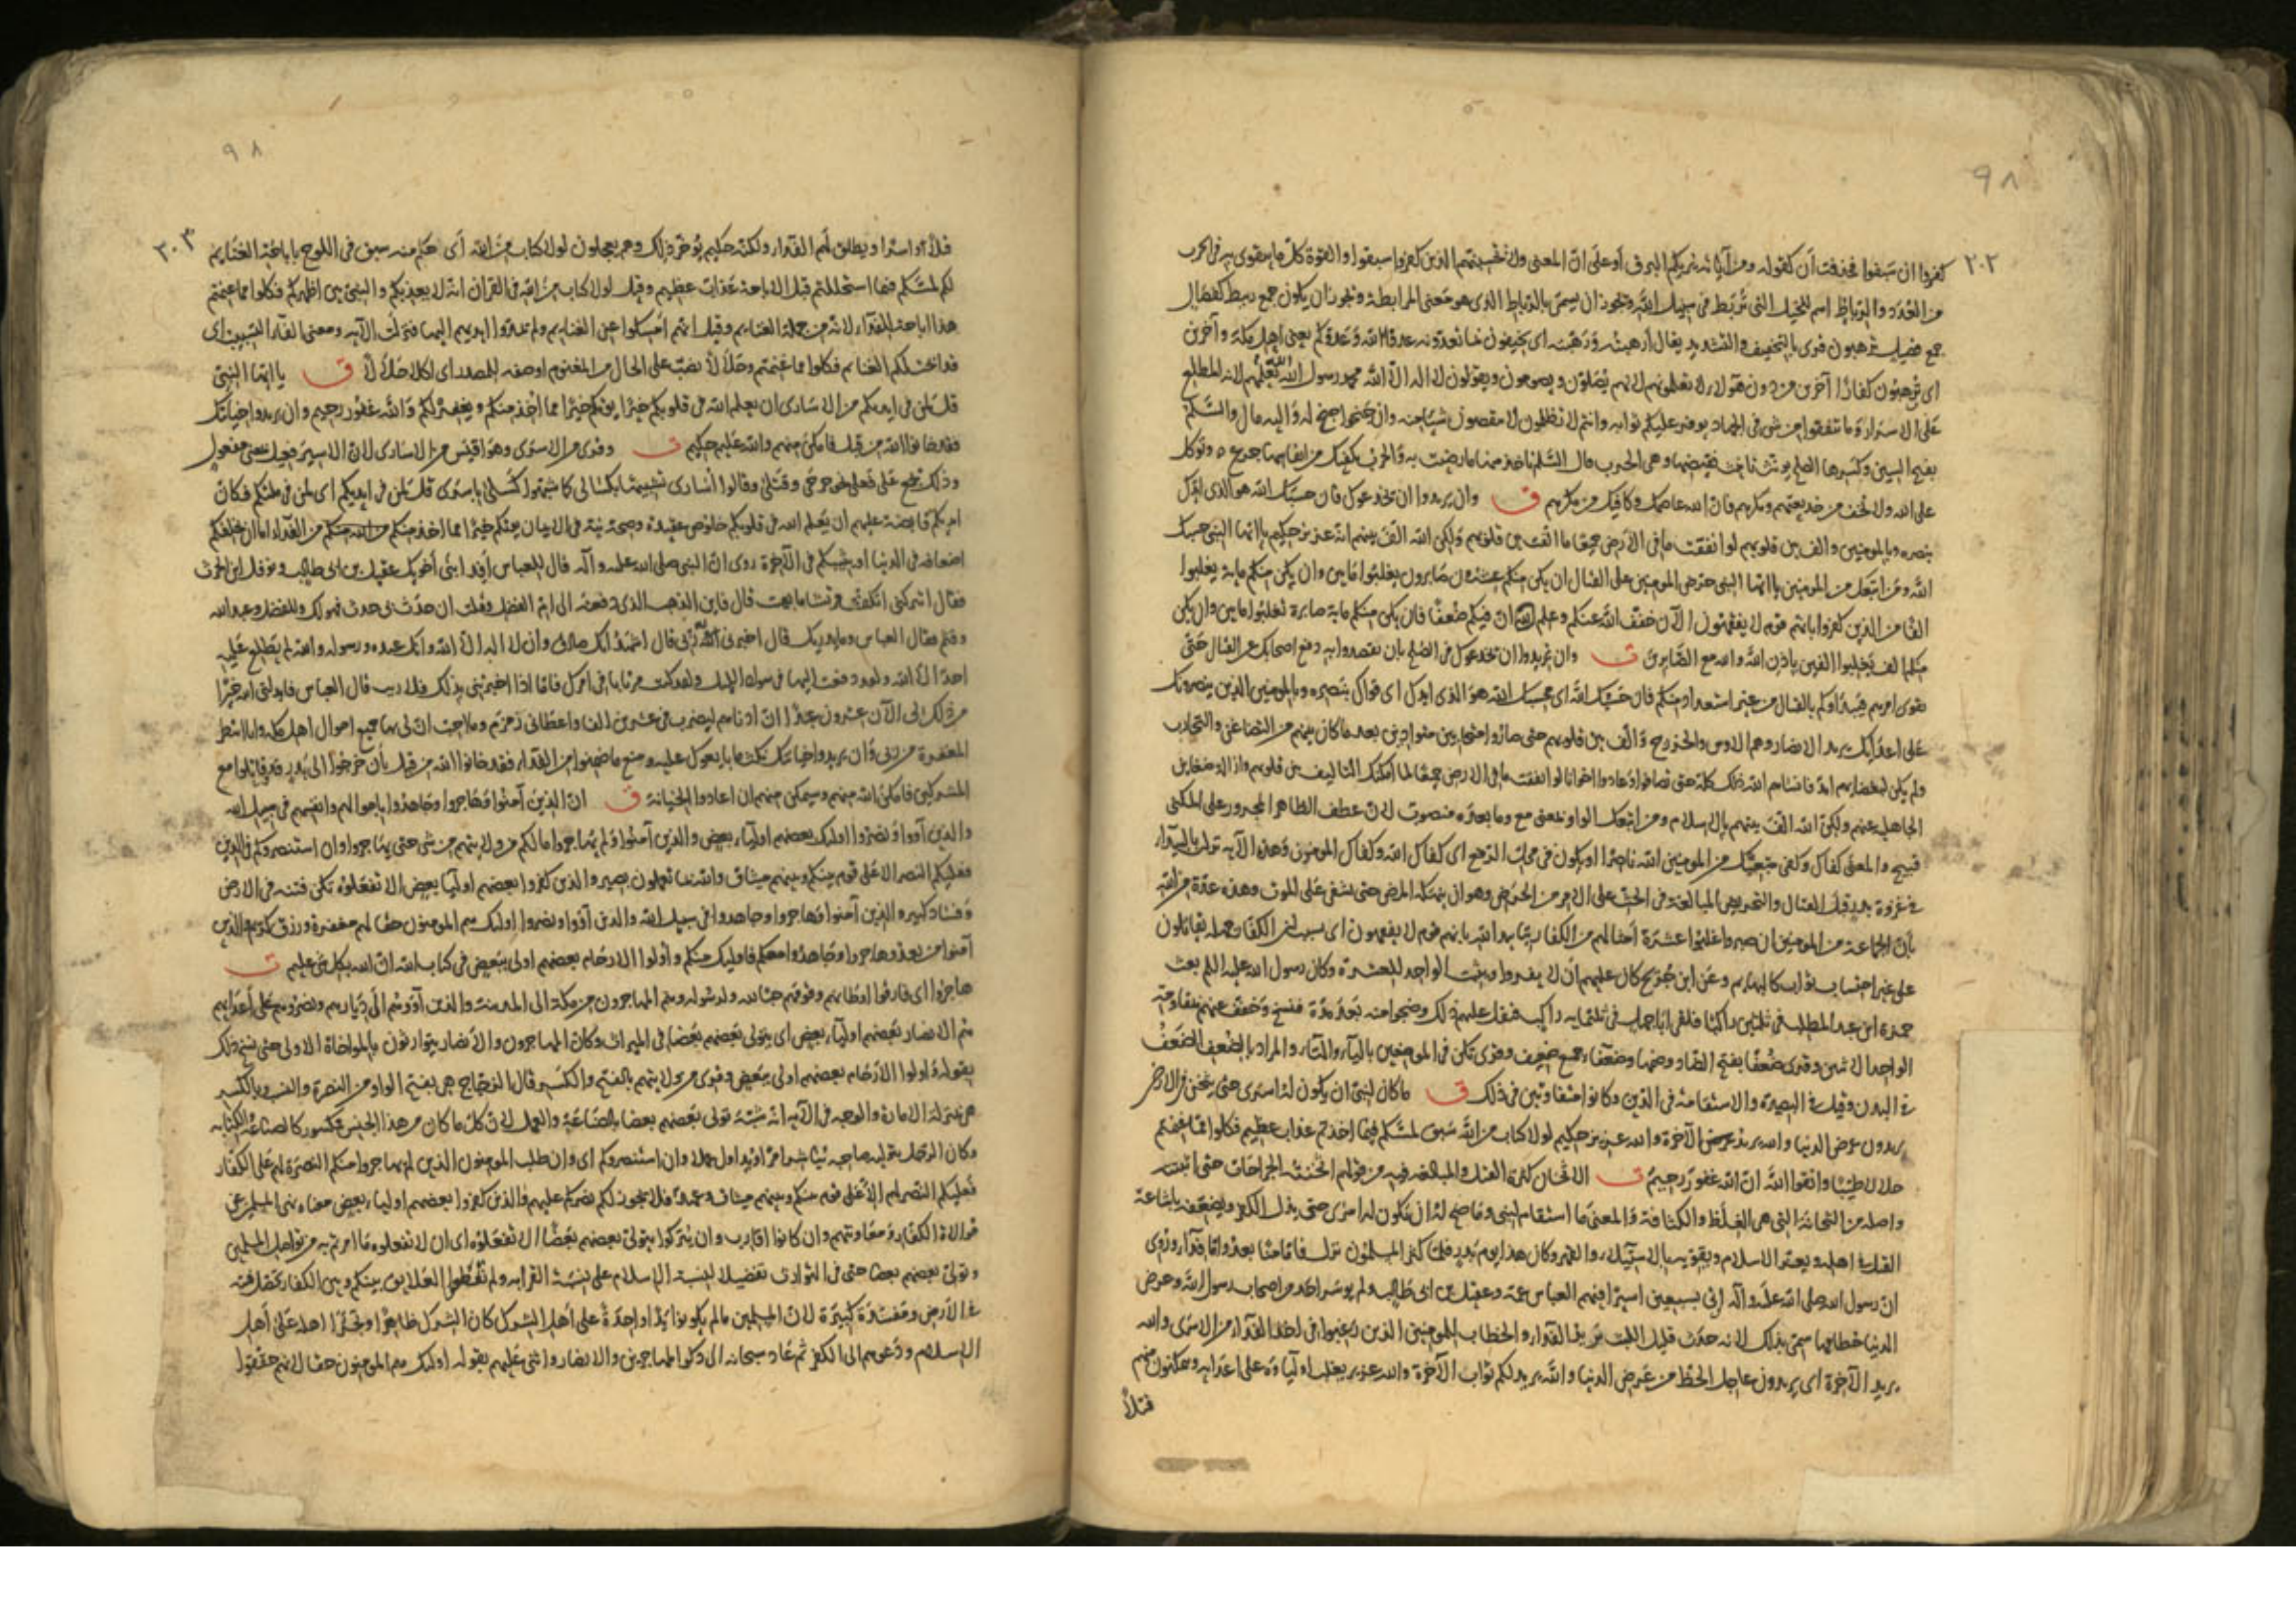 ٩٨
٢٠٢
كفروا ان سَبَقوا فحذفت اَن كقوله ومن آياته يُريكم البرق اَو على انّ المعنى ولا تحسبنّهم الذين كفروا سبقوا والقوة كلّ ما يتقوى به فى الحرب
من العُدَد والرِباط اسم للخيل التى تُربَط فى سبيل الله ويجوز ان يسمى بالرباط الذى هو بمعنى المرابطة ويجوز ان يكون جمع ربيط كفصال
جمع فصيل ترهبون قرئ بالتخفيف والتشديد يقال اَرهبتُه ورَهّبته اى يخيفون بما تعدونه عدو الله وعدوّكم يعنى اهل مكة وآخرين
اى ترهبون كفارًا آخرين من دون هؤلاء لا تعلمونهم لانهم يُصَلّون ويصومون ويقولون لا اله الا الله محمد رسول الله الله يَعلمُهم لانه المطلع
عَلى الاسرار وَما تنفقوا من شىء فى الجهاد يوفر عليكم ثوابه وانتم لا تظلمون لا تنقصون شيئا منه وان جَنحوا جنح له وَاليه مال والسّلم
بفتح السين وكسرها الصلح يؤنث تأنيث نقيضها وهى الحرب قال السّلم تاخذ منها ما رضيت به وَالحرب يكفيك من انفاسها جرع ٥ وتوكّل
على الله ولا تخف من خديعتهم ومكرهم فان الله عاصمك وكافيك من مكرهم ق وان يريدوا ان يخدعوك فان حسبك الله هو الذى ايّدك
بنصره وبالمومنين والف بين قلوبهم لو انفقت ما فى الاَرض جميعًا ما الّفت بين قلوبهم وَلكن الله الّف بينهم انّه عزيز حكيم يا ايّها النبى حسبك
اللّه وَمَن اتّبعك من المومنين يا ايّها النبى حرّض المومنين على القتال ان يكن منكم عشرون صَابرون يغلبوا مَايتين وان يكن منكم ماية يغلبوا
الفًا من الذين كفروا بانهم قوم لا يفقهون الآن خفف اللّه عنكم وعلم انّ فيكم ضعفًا فان يكن منكم ماية صابرة يغلبوا مايتين وان يكن
منكم الف يَغلبوا الفين باذن الله والله مع الصّابرين ت وان يريدوا ان يخدعوك فى الصلح بان يقصدوا به دفع اصحابك عن القتال حتى
يقوى امرهم فيبدأوكم بالقتال من غير استعداد منكم فان حَسبك اللّه اى محسبك الله هو الذى ايدك اى قوّاك بنصره وبالمومنين الذين ينصرونك
عَلى اعدَائك يريد الانصار وهم الاوس والخزرج وَالّف بين قلوبهم حتى صاروا متحابين متوادين بعد ما كان بينهم من التضاغن والتحارب
ولم يكن لبغضائهم امد فانساهم الله ذلك كلّه حتى تصافوا وعادوا اخوانا لو انفقت ما فى الارض جميعًا لما امكنك التأليف بين قلوبهم وازالة ضغاين
الجاهلية عنهم ولكنّ الله الفّ بينهم بالاسلام ومن اتبعك الواو بمعنى مع وما بعدَه منصوب لانّ عطف الظاهر المجرور على المكنى
قبيح والمعنى كفاك وكفى متبعيك من المومنين الله ناصرًا او يكون فى محل الرفع اى كفاك الله وكفاك المومنون وَهذه الآية نزلت بالبيداء
فى غزوة بدر قبل القتال والتحريض المبالغة فى الحث على الامر من الحرض وهو ان ينهكه المرض حتى يشفى عَلى الموت وهذه عدّة من الله
بانّ الجماعة من المومنين ان صبروا غلبوا عشرَة امثالهم من الكفار بتاييد الله بانهم قوم لا يفقهون اى بسبب انّ الكفار جهلة يقاتلون
على غير احتساب ثواب كالبهايم وعَن ابن جُريج كان عليهم اَن لا يفروا ويثبت الواحد للعشرة وكان رسول الله عليه السلم بعث
حمزة ابن عبد المطلب فى ثلثين راكبًا فلقى اباجهل فى ثلثماية راكب فثقل عليهم ذلك وضجوا منه بَعدَ مدّة فنسخ وَخفف عنهم بمقاومة
الواحد الاثنين وقرئ ضَعفًا بفتح الضاد وضمها وضعَفاء جمع ضعيف وقرئ تكن فى الموضعين بالياء والتاء والمراد بالضعف الضَعف
فى البدن وقيل فى البصيرة والاستقامة فى الدّين وكانوا متفاوتين فى ذلك ق ما كان لنبىّ ان يكون لهُ اسرى حتى يثخن فى الارض
يريدون عرض الدنيا والله يريد الآخرة والله عزيز حكيم لولا كتاب من اللّه سَبق لمسّكم فيما اخذتم عذاب عظيم فكلوا ممّا غنمتم
حلالا طيّبًا واتقوا اللّه انّ اللّه غفورٌ رَحيمٌ ت الاثخان كثرة القتل والمبالغة فيه من قولهم اثخنته الجراحات حتى اثبتته
واصله من الثخانة التى هى الغِلَظ والكثافة وَالمعنى مَا استقام لنبى وما صح لهُ ان يَكون له اسرى حتى يذل الكفر ويضعفه باشاعة
القتل فى اهله ويعزّ الاسلام ويقويه بالاستيلاء والقهر وكان هذا يوم بَدر فلمّا كثر المسلمون نزل فامّا منّا بعدُ وامّا فدآء ورُوى
انّ رسول الله صلى الله عليه وآله اُتى بسبعين اسيرًا فيهم العباس عمه وعقيل بن ابى طالب ولم يوسر احد من اصحاب رسول الله وعرض
الدنيا حطامها سمّى بذلك لانه حدَث قليل اللبث يريد بها الفداء والخطاب للمومنين الذين رغبوا فى اخذ الفداء من الاسرَى والله
يريد الآخرة اى يريدون عاجل الحظ من عَرض الدنيا واللّه يريد لكم ثواب الآخرة والله عزيز يغلب اوليآؤه على اعدَايه ويمكنون منهم
قتلًا
٩٨
٢٠٣
قتلًا واسرًا ويطلق لهم الفداء ولكنّه حكيم يُوخّر ذلك وهم يعجلون لولا كتاب منَ الله اَى حكم منه سبق فى اللوح باباحَة الغنَايم
لكم لمسّكم فيما استحللتم قبل الاباحة عَذاب عظيم وقيل لولا كتاب من الله فى القرآن انّه لا يعذبكم والنبىّ بين اظهركم فكلوا مما غنمتم
هذا اباحة للفدآء لانّه من جملة الغنايم وقيل انهم اَمسكوا عن الغنايم ولم يمدّوا ايديهم اليها فنزلت الآية ومعنى الفآء التسبيب اى
قد ابحت لكم الغنايم فكلوا مما غنمتم وحَلالًا نصب على الحال من المغنوم او صفة للمصدر اى اكلا حَلالًا ق يا ايّها النبىّ
قل لمن فى ايديكم من الاسَارى ان يعلم الله فى قلوبكم خيرًا يؤتكم خيرًا مما اُخذ منكم ويغفر لكم وَاللّه غفُور رحيم وان يريدوا خيانَتك
فقد خانوا الله من قبل فامكن منهم والله عَليم حكيم ت وقرئ من الاسرَى وهو اقيس من الاسَارى لانّ الاسيرَ فعيل بمعنى مفعول
وذلك يجمع عَلى فعلى نحو جرحَى وقَتلَى وقالوا اُسَارى تشبيها بكسَالى كما شبهوا كَسلى باسرى قل لمن فى ايديكم اى لمن فى ملكتكم فكان
ايديكم قابضة عليهم ان يَعلم الله فى قلوبكم خلوص عقيدة وصحة نيّة فى الايمان يؤتكم خيرًا مما اخذ منكم من الفداء اما ان يخلفكم
اضعافه فى الدنيا او يثيبكم فى الآخرة روى انّ النبى صلى الله عليه وآله قال للعباس اُفدِ ابنَى اَخويك عقيل بن ابى طالب ونوفل ابن الحرث
فقال اتتركنى اتكفّف قريشا ما بقيت قال فاين الذهب الذى دفعته الى امّ الفضل وقلت ان حدَث بى حدث فهو لك وللفضل وعبد الله
وقثم فقال العباس وما يدريك قال اخبرنى اللّه ربّى قال اشهدُ انّك صادق وان لا اله الا اللّه وانّك عبده ورسوله والله لم يَطّلع عَليه
احدٌ الّا اللّه ولقد دفعت اليها فى سواد الليل ولقد كنت مرتابا فى امرك فامّا اذا اخبرتنى بذلك فلا ريب قال العباس فابدلنى الله خيرًا
من ذلك لى الآن عشرون عبدًا انّ ادناهم ليضرب فى عشرين الفا واعطانى زَمزم وما احب انّ لى بها جميع اموال اهل مكة وانا انتظر
المغفرة من ربى وَان يريدوا خيانتك نكث ما بايعوك عليه ومنع ما ضمنوا من الفدآء فقد خانوا الله من قبل بأن خرجُوا الى بَدر وقاتلوا مع
المشركين فامكنَ الله منهم وسيمكن منهم ان اعادوا الخيانة ق انّ الذينَ آمنُوا وَهَاجروا وجَاهدُوا باموالهم وانفسهم فى سبيل الله
والذين آووا ونصَرُوا اوليك بعضهم اوليآء بعض والذين آمنُوا وَلم يُهاجروا مالكم من ولايتهم من شىء حتى يهاجروا وان استنصروكم فى الدين
فعليكم النصر الا عَلى قوم بينكم وبينهم ميثاق والله بما تعملون بصير والذين كفروا بعضهم اوليآء بعض الّا تفعَلوه تكن فتنة فى الارض
وَفسَاد كبير والذين آمنوا وهَاجروا وجاهدوا فى سبيل الله والذين آوَوا ونصروا اوليك هم المومنون حقّا لهم مغفرة ورزق كريم والذين
آمنوا من بعد وهاجروا وجَاهدُوا معكم فاوليك منكم واُولُوا الارحام بعضهم اولى ببَعض فى كتاب الله انّ الله بكل شىء عليم ت
هاجرُوا اى فارقوا اوطانهم وقومَهم حبّا لله ولرسُوله وهم المهاجرون من مكة الى المدينة والذين آوَوهُم الَى دِيَارهم ونصَرُوهم عَلى اَعدَائهم
هُم الانصار بَعضهم اوليآء بعض اى يتولى بَعضهم بَعضا فى الميراث وكانَ المهاجرون والاَنصار يتوارثون بالمواخاة الاولى حتى نُسخ ذلك
بقوله وَاولوا الاَرحَام بعضهم اولى ببَعض وقرئ من ولايتهم بالفتح والكسر قال الزجاج هى بفتح الواو من النصرة والنسَب وبالكسر
هى بمنزلة الامارة والوجه فى الآية انه شَبّه تولى بَعضهم بعضا بالصّناعَة والعمل لانّ كلّ ما كان من هذا الجنس مكسور كالصناعة والكتابة
وكان الرجل بتوليه صاحبه شيئا يباشر امرًا ويزاول عملا وان استنصروكم اى وان طلب المومنون الذين لم يهاجروا منكم النصرَة لهم عَلى الكفار
فعَليكم النصر لهم الّا عَلى قوم بينكم وبينهم ميثاق وعهد فلا يجوز لكم نصركم عليهم والذين كفروا بعضهم اوليآء بعض معناه نهى المسلمين عن
موالاة الكفار وَمعاونتهم وان كانوا اقارب وان يُتركوا يتولى بعضهم بَعضًا الّا تَفعَلوُه اى ان لا تفعلوه مَا امرتم به من تواصل المسلمين
وتولى بعضهم بعضا حتى فى التوارث تفضيلا لنسبة الاسلام على نسبَة القرابه ولم تقطعوا العَلايق بينكم وبين الكفار تحصل فتنة
فى الاَرض ومفسَدة كبيرَة لانّ المسلمين مالم يكونوا يَدًا واحِدةً على اَهل الشرك كان الشرك ظاهرًا وتجرّأ اهله عَلى اَهل
الاسلام ودَعوهم الى الكفر ثم عَاد سبحانه الى ذكر المهاجرين والانصار واثنى عَليهم بقوله اولئك هم المومنون حقّا لانهم حقّقوا